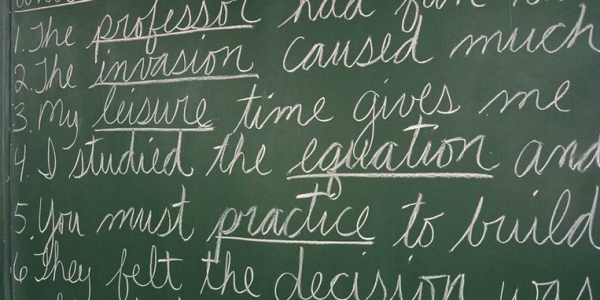 1. The professor had fun
2. The invasion caused much
3. My leisure time gives me
4. I studied the equation and
5. You must practice to build
6 They felt the decision was